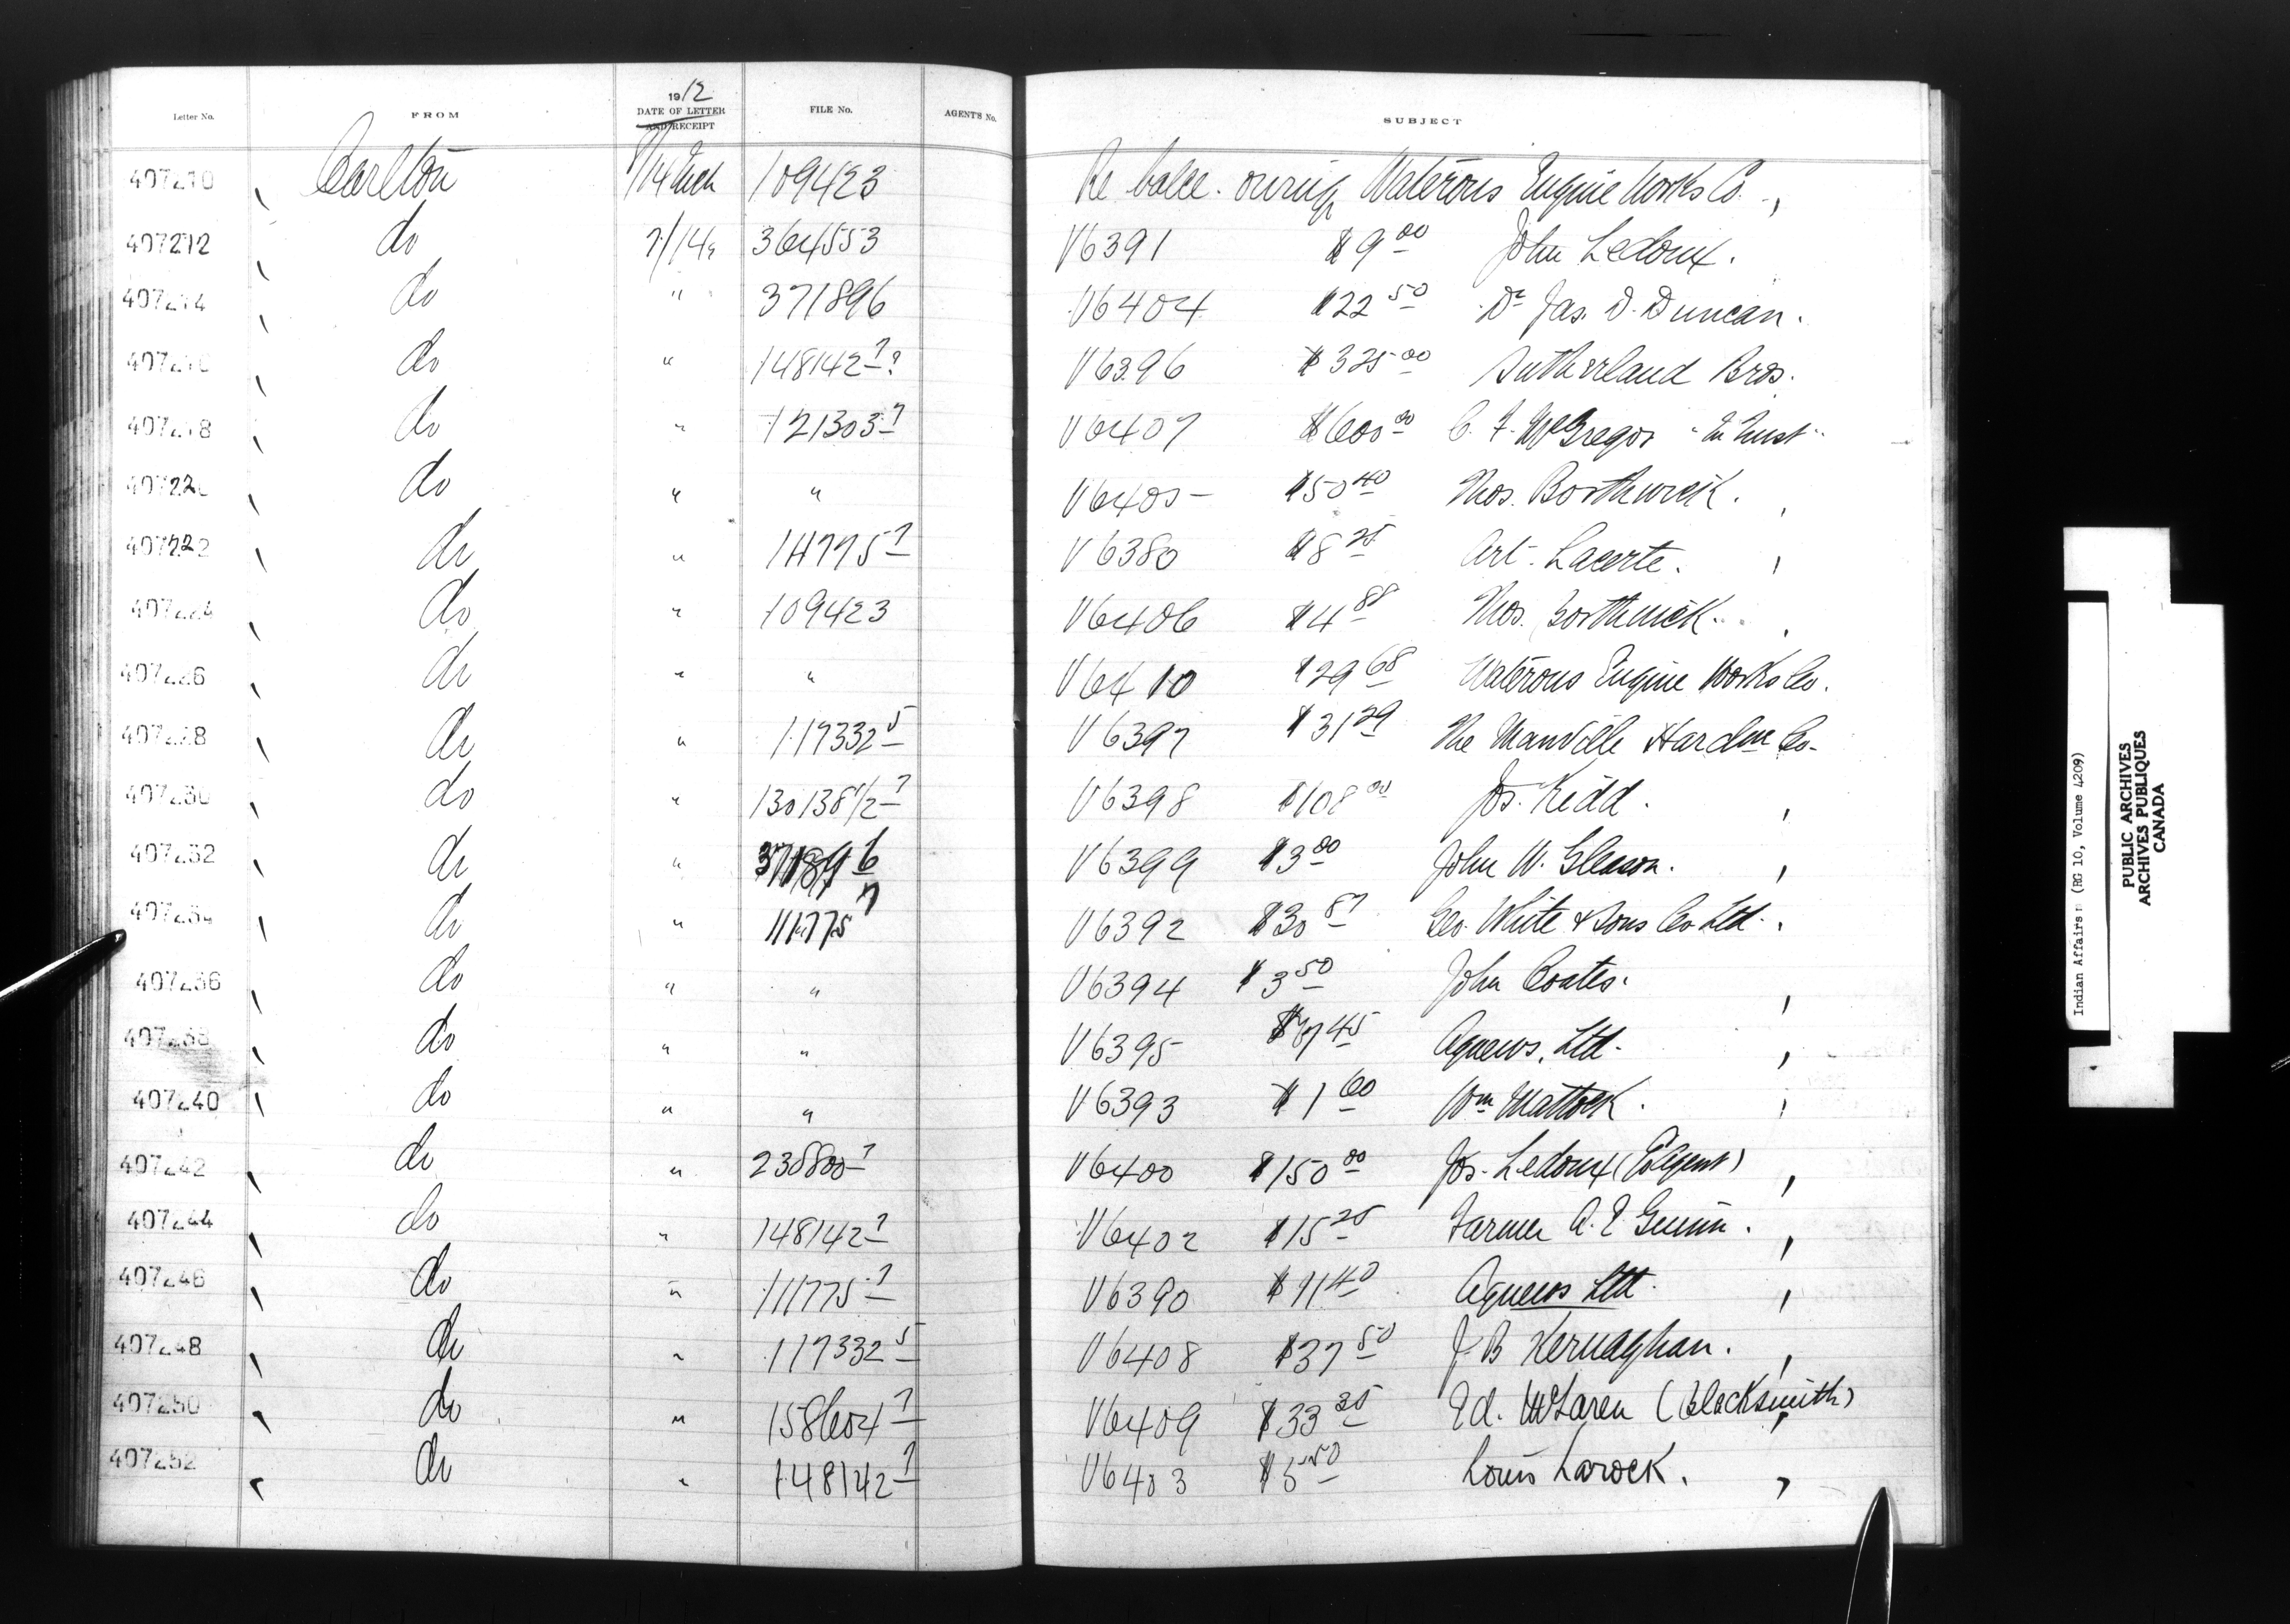 Letter No. FROM 1912 DATE OF LETTER AND RECEIPT FILE No. AGENT'S No. SUBJECT
407210 Carlton 109423 Re balce. owing Waterous Engine Works Co.
407212 do 7/14 364553 V6391 $9 00 John Ledoux.
407214 do " 371896 V6404 $22 50 Dr Jas. D. Duncan.
do " 148142 7 ? V6396 $325 00 Sutherland Bros.
407218 do " 121303 7 V6407 $600 00 C. F. McGregor "In Trust"
do " " V6405 $50 40 Thos. Borthwick.
407222 do " V6380 $8 25 Art. Lacerte.
407224 do " 109423 V6406 $4 88 Thos. Borthwick.
407226 do " " V6410 $29 68 Waterous Engine Works Co.
407228 do " 117332 5 V6397 $31 29 The Manville Hardw Co.
407230 do " 130138 1/2 7 V6398 $108 00 Jos. Kidd.
407232 do " 371896 V6399 $3 00 John W. Gleason.
407234 do " 111775 7 V6392 $30 87 Geo. White & Sons Co Ltd.
407236 do " " V6394 $3 50 John Coates.
407238 do " " V6395 Agnews, Ltd.
407240 do " " V6393 $1 60 Wm Mattock.
407242 do " 230800 7 V6400 $150 00 Jos. Ledoux
407244 do " 148142 7 V6402 $15 25 Farmer A. E
407246 do " 111775 7 V6390 $91 40 Agnews Ltd.
407248 do " 117332 5 V6408 $37 50 J. B Kernaghan.
407250 do " 158604 7 V6409 $33 35 Ed. McLaren (blacksmith)
407252 do " 148142 7 V6403 $5 50 Louis Larock.
Indian Affairs: (RG 10, Volume 4209)
PUBLIC ARCHIVES
ARCHIVES PUBLIQUES
CANADA